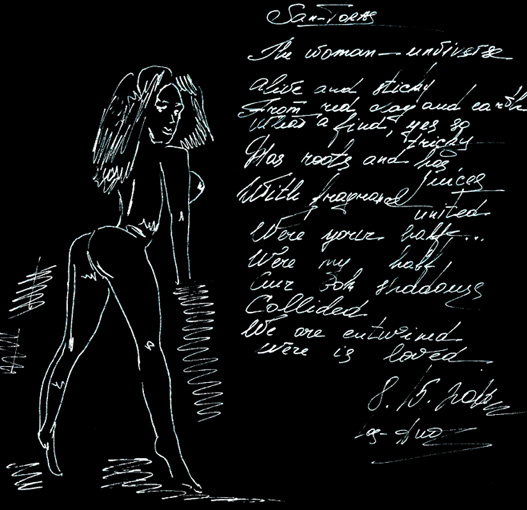 San-Toras
The woman - untiverse
alive and sticky
From red clay and earth
What a find, yes so
tricky
Has roots and has
juices
With fragrand
united
Were your half...
Were my half,
Our shadows
Collided
We are entwined
were is loved
8.15.